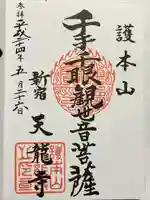 護本山
千手千眼観世音菩薩
奉拝 平成二十四年五月二十六日
新宿
天龍寺